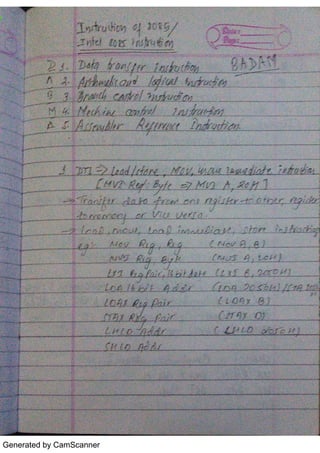 Instruction of 8085/
Intel 8085 instruction
Date:
Page:
D 1. Data transfer instruction BADAM
A 2. Arithmetic and logical instruction
B 3 Branch control instruction
M 4. Machine control instruction
A 5. Assembler Reference Instruction.
1 DTI => Load/store, Mov, move immediate intruction
[MVI Reg: Byte => MVI A, 20H]
→ Transfer data from one register to other register
to memory or vice versa.
→ load, move, load immediate, store instruction
eg: Mov Rig, Rig (Mov A, B)
MVI Rig Byte (MVI A, 20H)
LXI Rig Pair, 16 bit data (LXI B, 2050H)
LDA 16 bit Addr (LDA 2050H)/STA
LDAX Reg Pair (LDAX B)
STAX Reg Pair (STAX D)
LHLD Addr (LHLD 2050H)
SHLD Addr
Generated by CamScanner